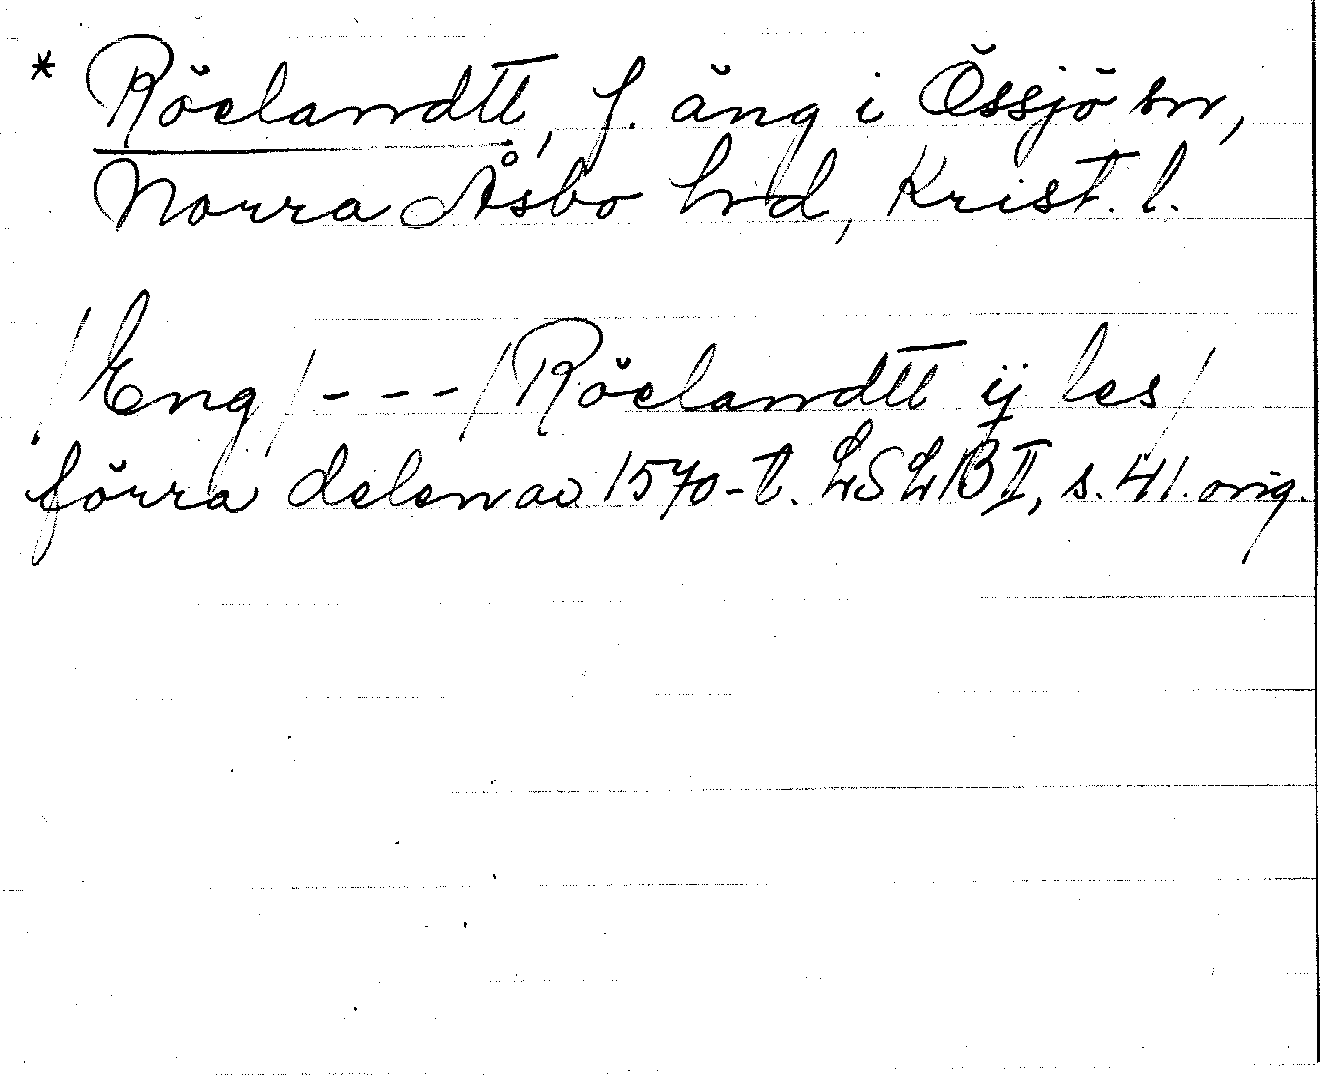 * Röelandtt, f. äng i Össjö sn,
Norra Åsbo hrd, Krist. l.
/Eng/ - - - /Röelandtt ij les/
förra delen av 1570-t. LSLB II, s. 41. orig.